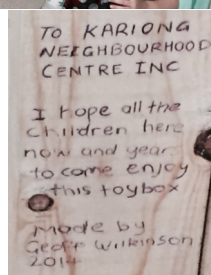 TO KARIONG
NEIGHBOURHOOD
CENTRE INC
I hope all the
children here
now and year
to come enjoy
this toybox
Made by
Geoff Wilkinson
2014